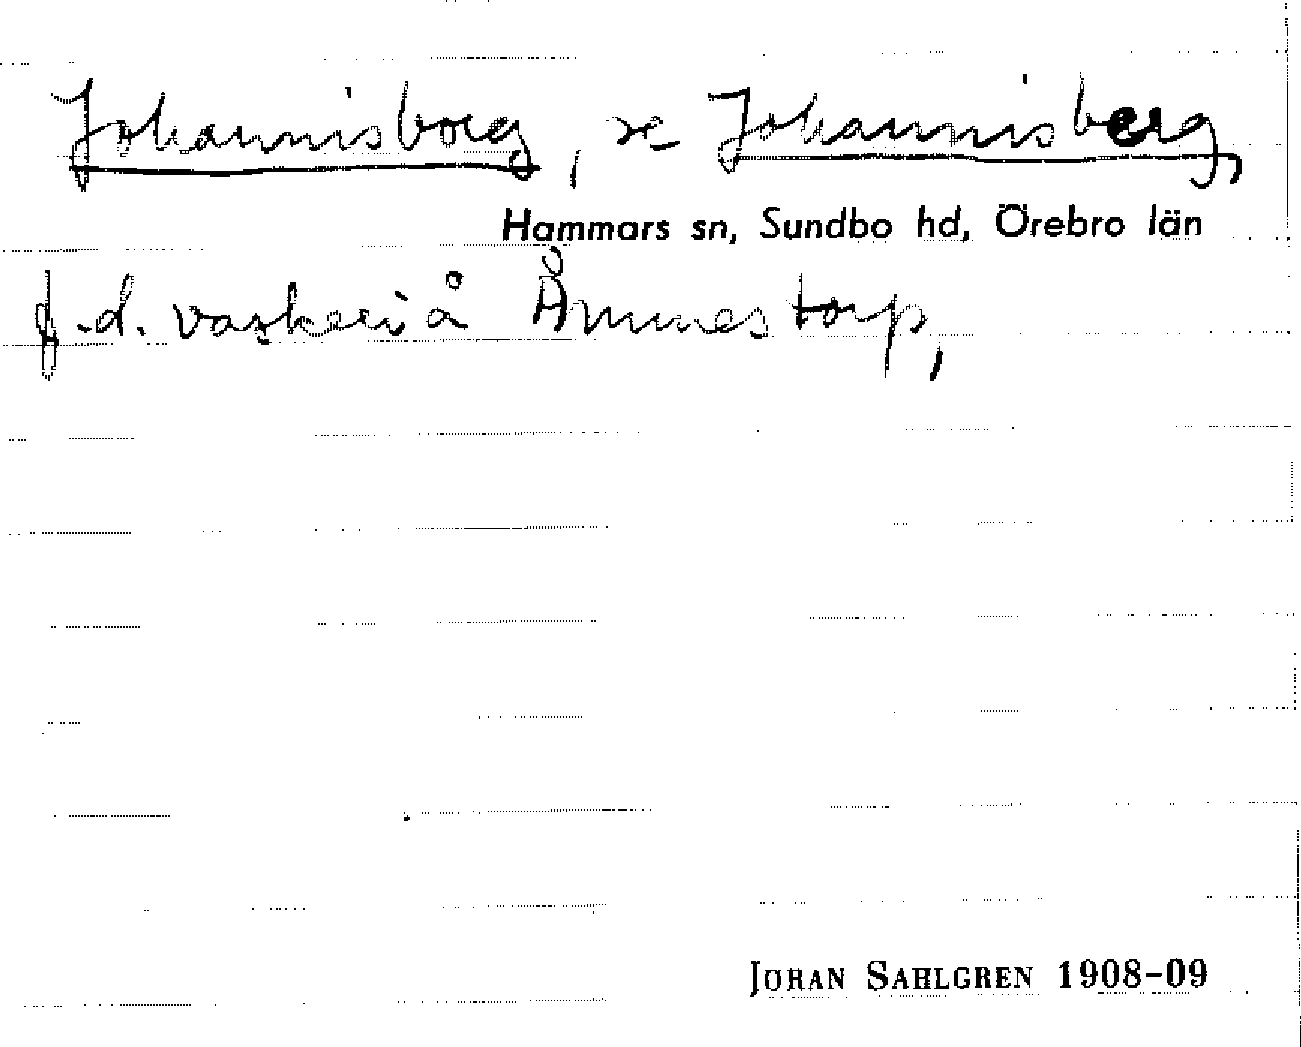 Johannisborg, se Johannisberg,
Hammars sn, Sundbo hd, Örebro län
f.d. vaskeri å Åmmestorp,
JOHAN SAHLGREN 1908-09